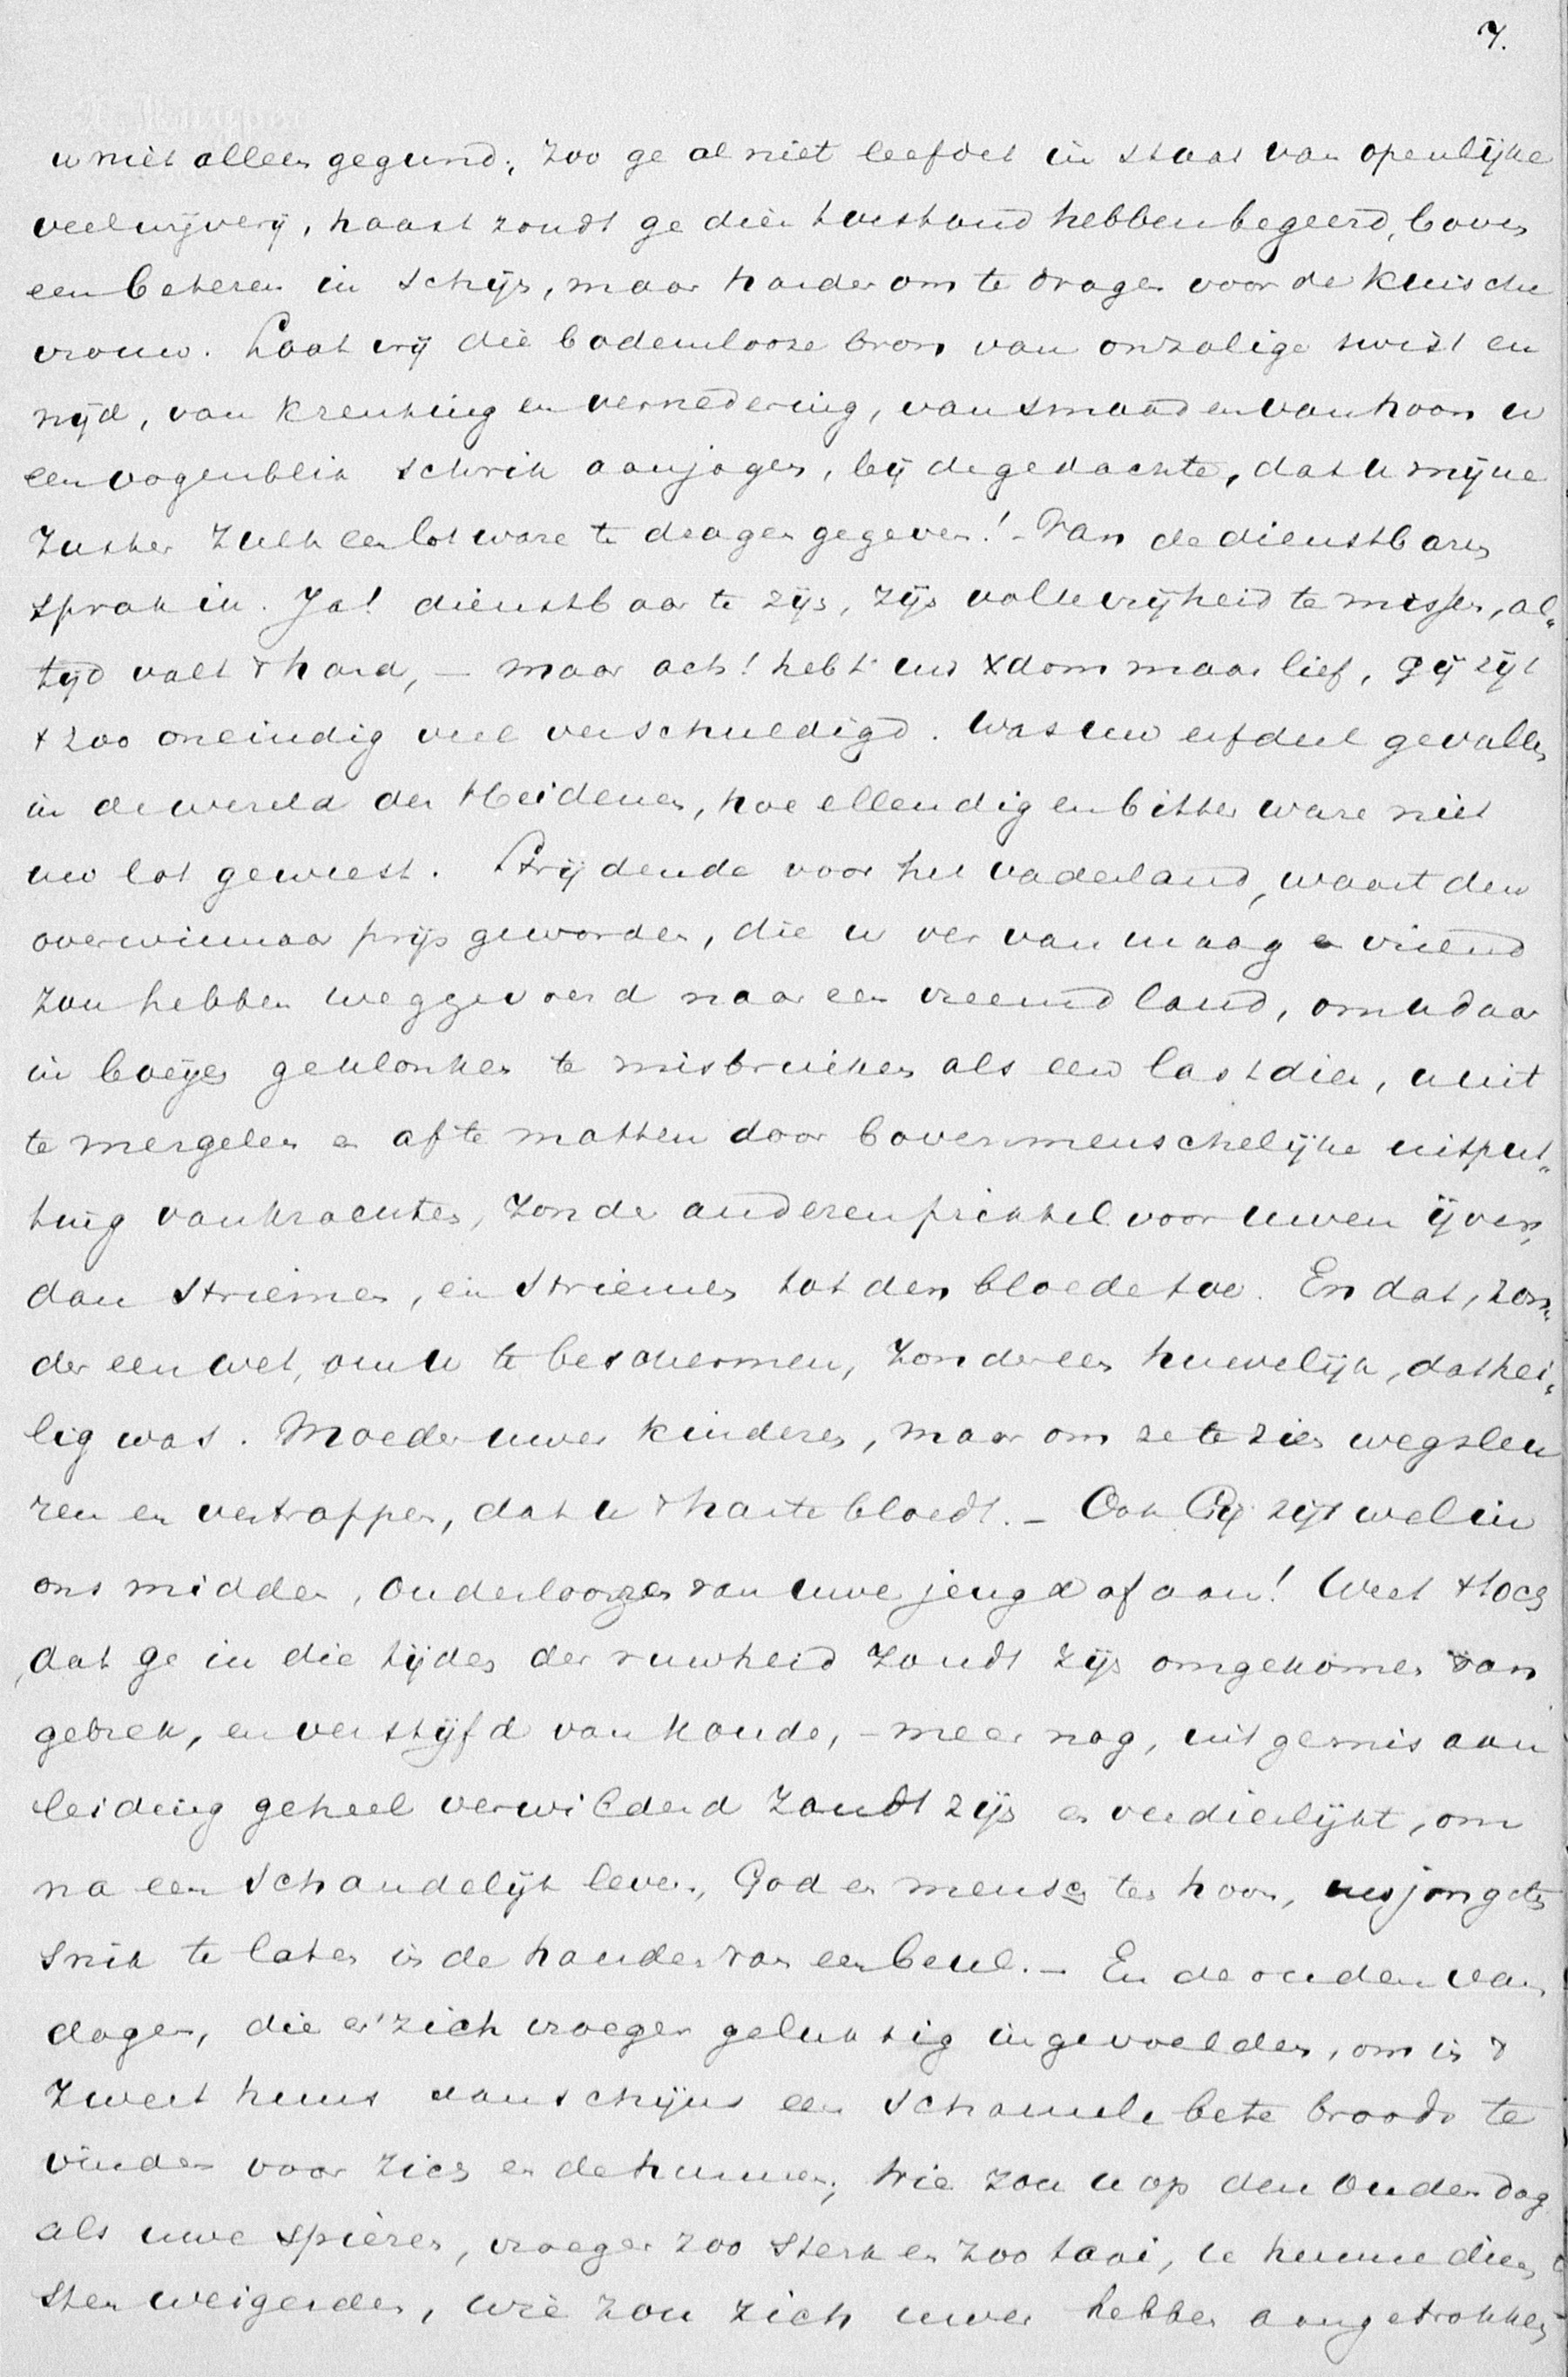 7.
u niet alleen gegund; zoo ge al niet leefdet in staat van openlijke
veelwijverij, haast zoudt ge dien toestand hebben begeerd, boven
een beteren in schijn, maar harder om te dragen voor de kuische
vrouw. Laat vrij die bodemlooze bron van onzalige twist en
nijd, van krenking en vernedering, van smaad en van hoon u
een oogenblik schrik aanjagen, bij de gedachte, dat u mijne
Zuster zulk een lot ware te dragen gegeven! - Van de dienstbaren
sprak ik. Ja! dienstbaar te zijn, zijn volle vrijheid te missen, al„
tijd valt 't hard, — maar ach! hebt uw Xdom maar lief, gij zijt
't zoo oneindig veel verschuldigd. Was uw erfdeel gevallen
in de wereld der Heidenen, hoe ellendig en bitter ware niet
uw lot geweest. Strijdende voor het vaderland, waart den
overwinnaar prijs geworden, die u ver van maag en vriend
zou hebben weggevoerd naar een vreemd land, om u daar
in boeijen geklonken te misbruiken als een lastdier, u uit
te mergelen en af te matten door bovenmenschelijke uitput„
ting van krachten, zonder anderen prikkel voor uwen ijver,
dan striemen, en striemen tot den bloede toe. En dat, zon„
der een wet, om u te beschermen, zonder een huwelijk, dat hei„
lig was. Moeder uwer kinderen, maar om ze te zien wegsleu
ren en vertrappen, dat u 't harte bloedt. — Ook Gij zijt wel in
ons midden, Ouderloozen van uwe jeugd af aan! Weet 't toch
dat ge in die tijden der ruwheid zoudt zijn omgekomen van
gebrek, en verstijfd van koude, — meer nog, uit gemis aan
leiding geheel verwilderd zoudt zijn en verdierlijkt, om
na een schandelijk leven, God en mensch ten hoon, uw jongsten
snik te laten in de handen van een beul. — En de ouden van
dagen, die er zich vroeger gelukkig in gevoelden, om in 't
zweet huns aanschijns een schamele bete broods te
vinden voor zich en de hunnen; wie zou u op den Ouden dag
als uwe spieren, vroeger zoo sterk en zoo taai, u hunne dien
sten weigerden, wie zou zich uwer hebben aangetrokken